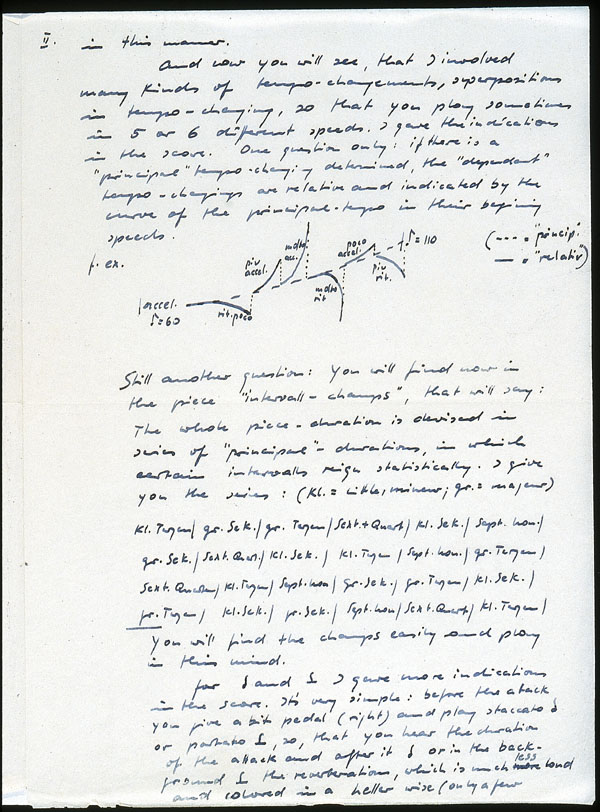 II. in this manner.
And now you will see, that I involved
many kinds of tempo-changements, superpositions
in tempo-changing, so that you play sometimes
in 5 or 6 different speeds. I gave the indications
in the score. One question only: if there is a
"principal" tempo-changing determined, the "dependant"
tempo-changings are relative and indicated by the
curve of the principal-tempo in their begining
speeds.
f. ex.
accel.
= 60
rit. poco
più accel.
molto acc.
molto rit
poco accel.
più rit.
= 110
(---- = "princip."
— = "relativ")
Still another question: You will find now in
the piece "intervall-champs", that will say:
The whole piece-duration is devised in
series of "principal"-durations, in which
certain intervalls reign statistically. I give
you the series: (Kl. = little, mineur; gr. = majeur)
Kl. Terzen/ gr. Sek./ gr. Terzen/ Sext.+Quart/ Kl. Sek./ Sept. Non./
gr. Sek./ Sext. Quart./ Kl. Sek./ Kl. Terzen/ Sept. Non./ gr. Terzen/
Sext. Quarten/ Kl. Terzen/ Sept. Non/ gr. Sek./ gr. Terzen/ Kl. Sek./
gr. Terzen/ Kl. Sek./ gr. Sek./ Sept. Non/ Sext. Quart/ Kl. Terzen/
You will find the champs easily and play
in this mind.
For and I gave more indications
in the score. It's very simple: before the attack
you give a bit pedal (right) and play staccato
or portato, so, that you hear the duration
of the attack and after it or in the back-
ground the reverberation, which is much less loud
and colored in a heller wise (only a few